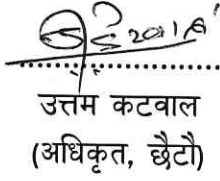 उत्तम कटवाल
(अधिकृत, छैटौं)